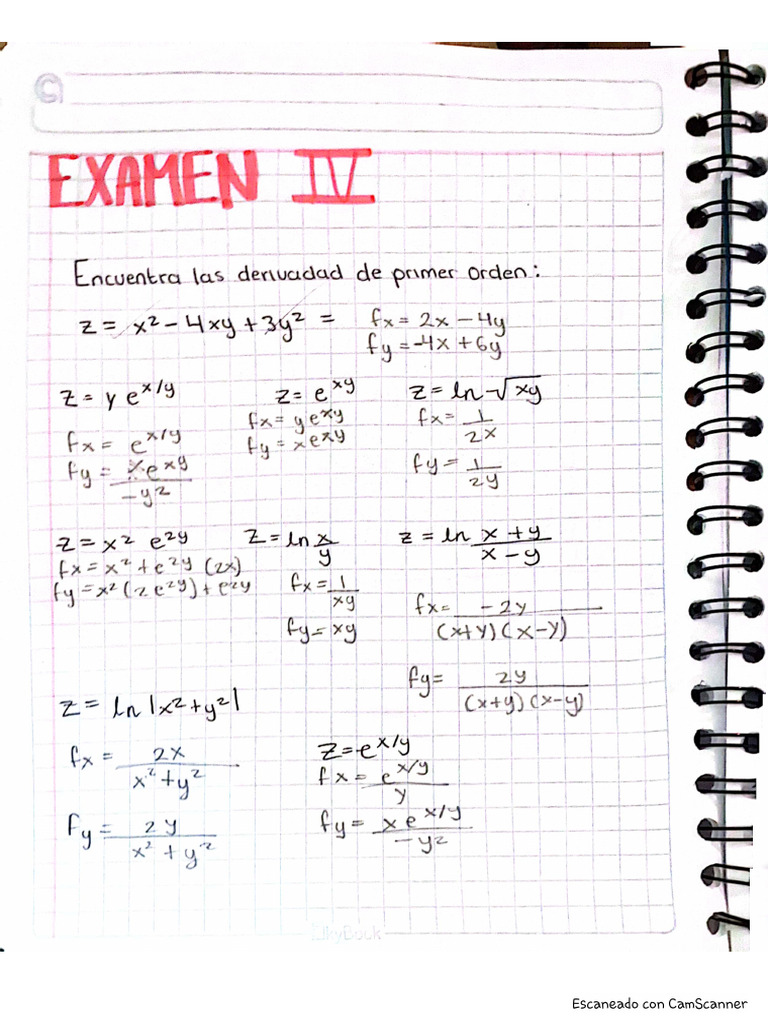 EXAMEN IV
Encuentra las derivadad de primer orden:
z = x² - 4xy + 3y² = fx = 2x - 4y
fy = -4x + 6y
z = y e^x/y
fx = e^x/y
fy = xe^xy / -y²
z = e^xy
fx = ye^xy
fy = xe^xy
z = ln √xy
fx = 1/2x
fy = 1/2y
z = x² e^2y
fx = x² + e^2y (2x)
fy = x² (2e^2y) + e^2y
z = ln x/y
fx = 1/xy
fy = xy
z = ln x + y / x - y
fx = -2y / (x+y)(x-y)
fy = 2y / (x+y)(x-y)
z = ln |x² + y²|
fx = 2x / x² + y²
Fy = 2y / x² + y²
z = e^x/y
fx = e^x/y / y
fy = x e^x/y / -y²
Escaneado con CamScanner